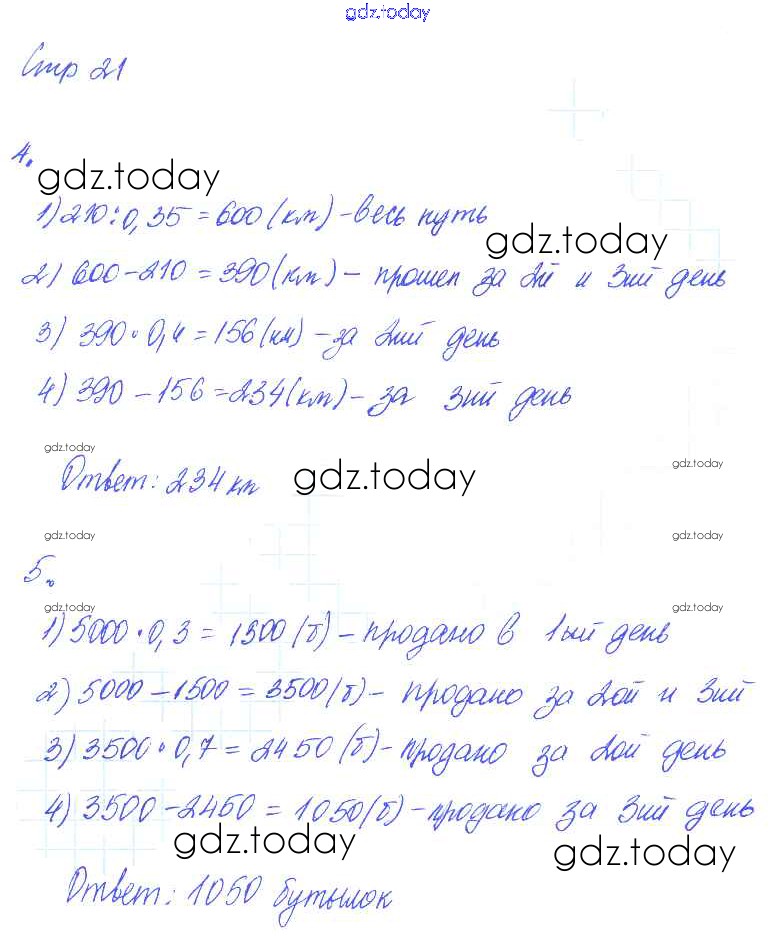 gdz.today
Стр 21
4.
gdz.today
1) 210:0,35=600(км)-весь путь
gdz.today
2) 600-210=390(км)-прошел за 2й и 3ий день
3) 390·0,4=156(км)-за 2ий день
4) 390-156=234(км)-за 3ий день
gdz.today
Ответ: 234 км
gdz.today
gdz.today
gdz.today
gdz.today
5.
gdz.today
gdz.today
1) 5000·0,3=1500(б)-продано в 1ый день
2) 5000-1500=3500(б)-продано за 2ой и 3ий
3) 3500·0,7=2450(б)-продано за 2ой день
4) 3500-2450=1050(б)-продано за 3ий день
gdz.today
gdz.today
Ответ: 1050 бутылок